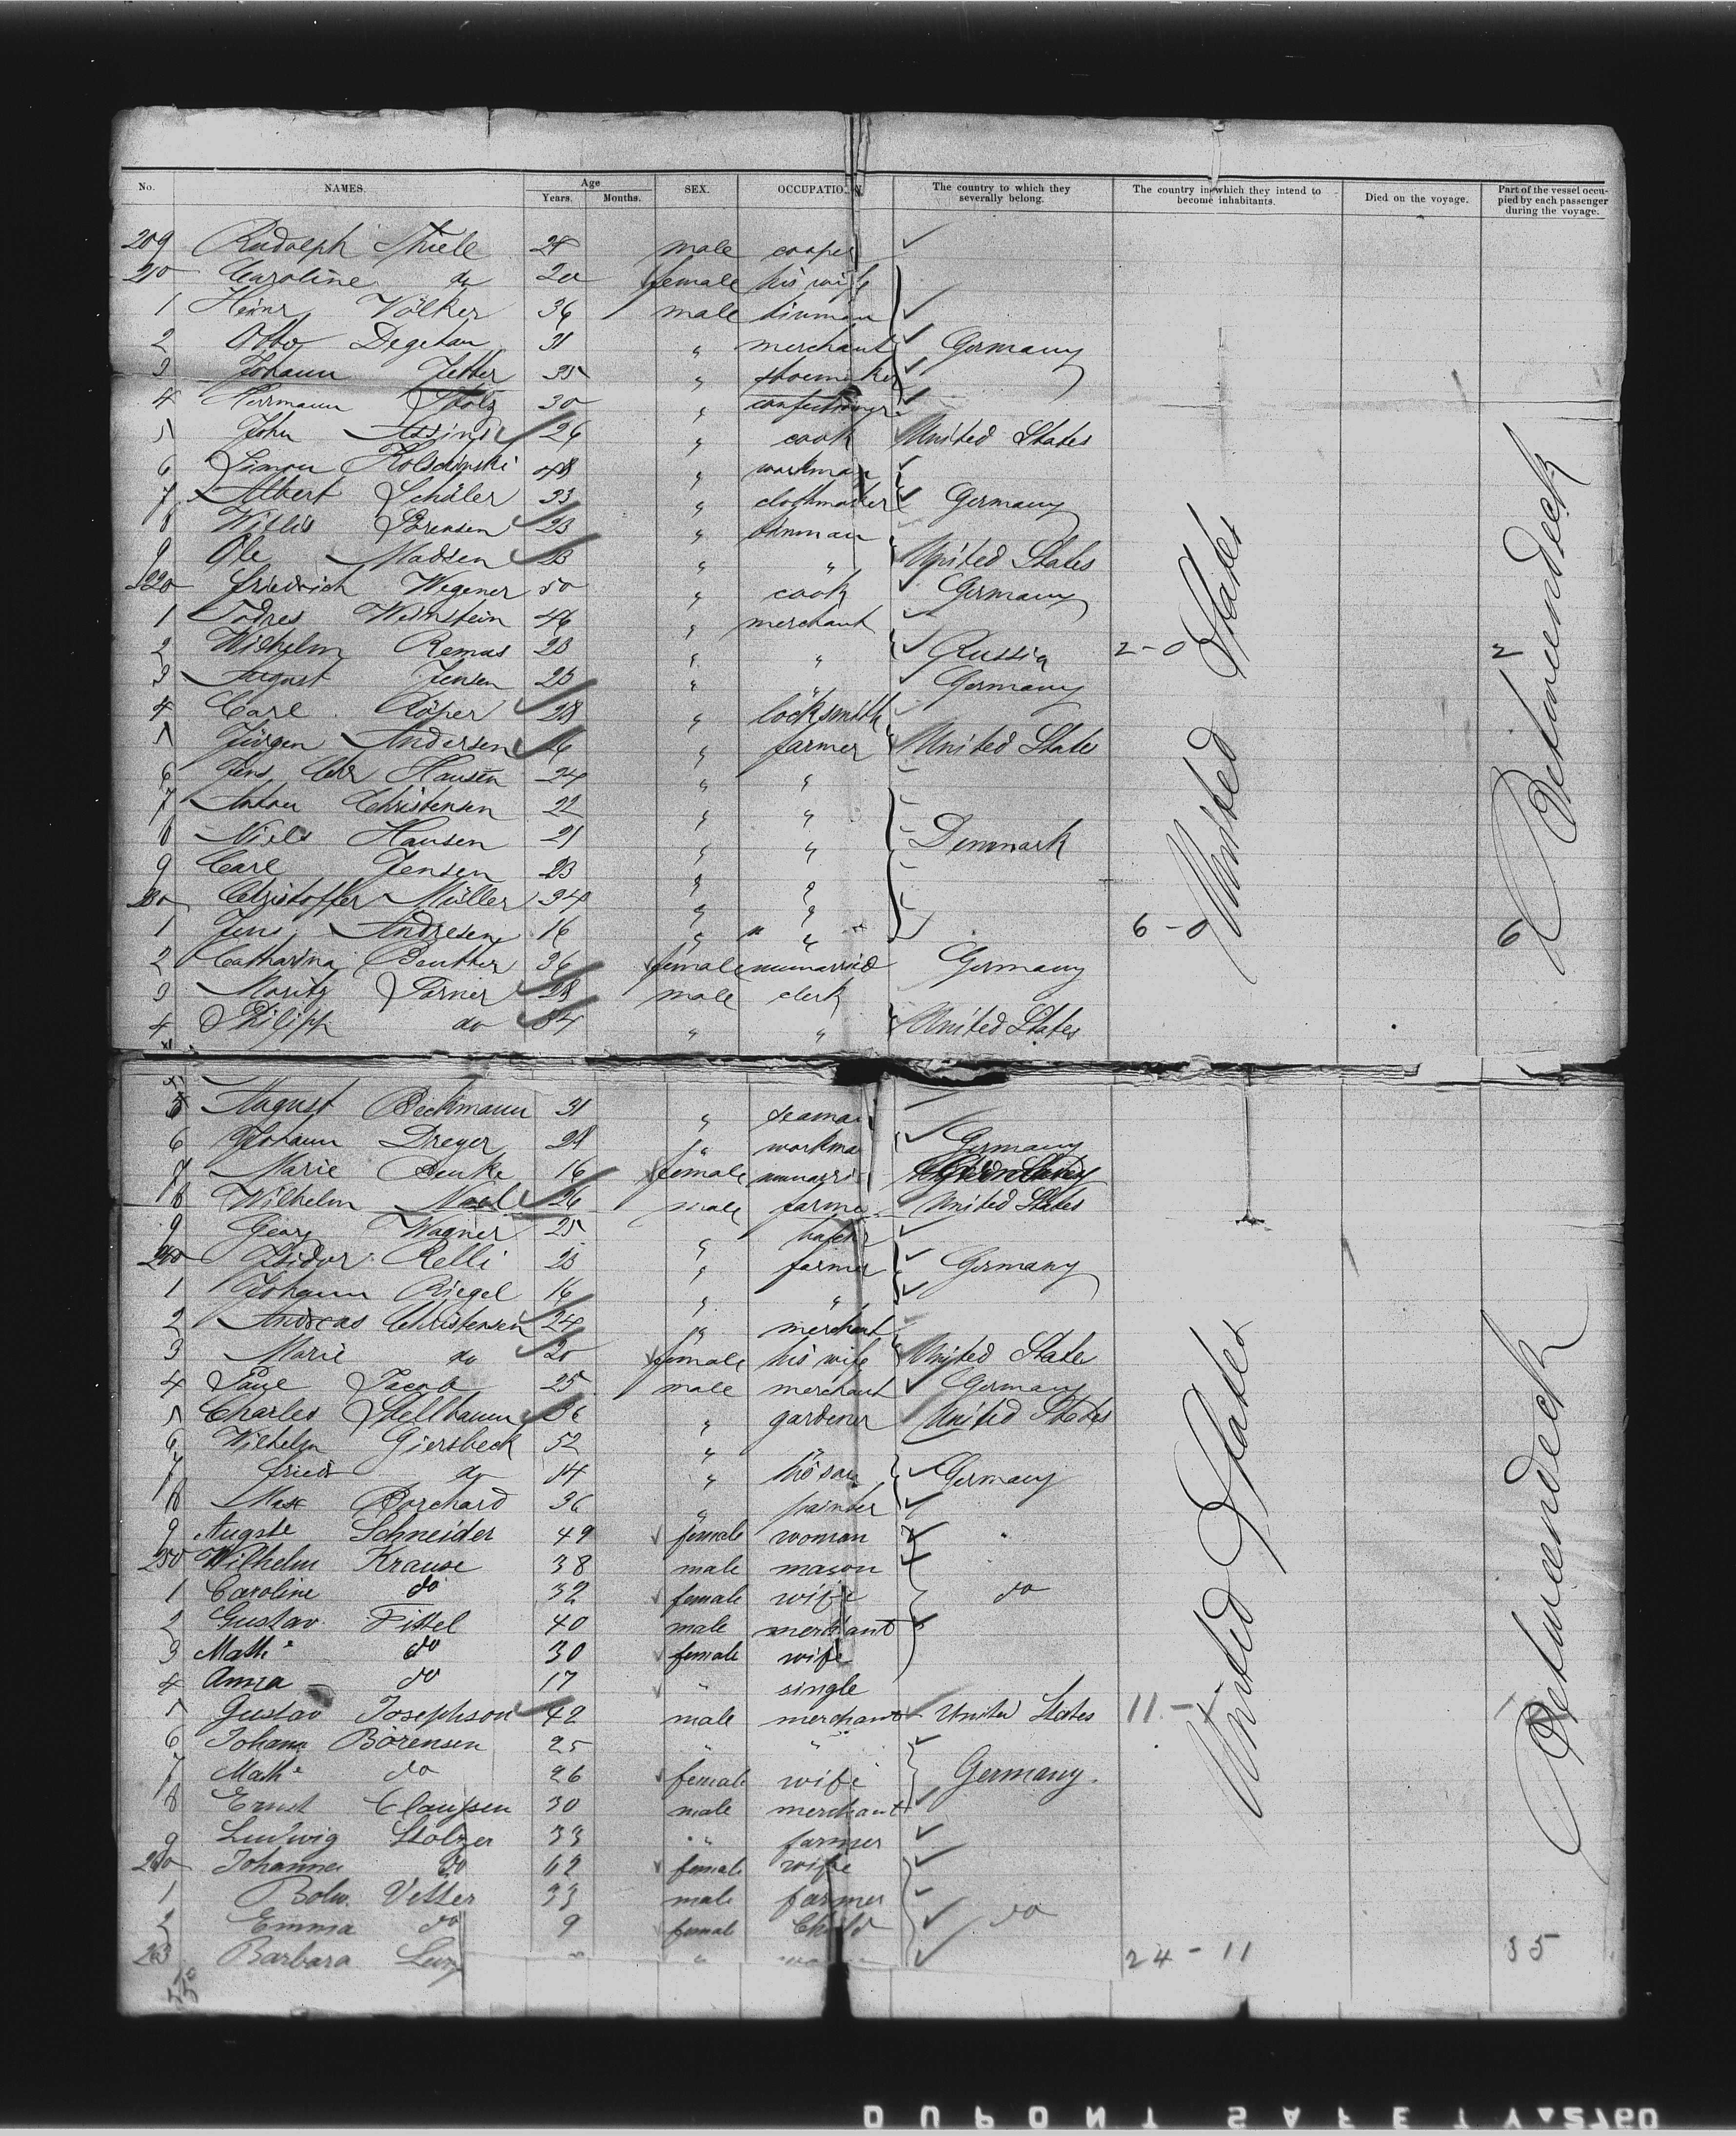 No. NAMES. Age Years. Months. SEX. OCCUPATION. The country to which they severally belong. The country in which they intend to become inhabitants. Died on the voyage. Part of the vessel occupied by each passenger during the voyage.
209 Rudolph Thiele 28 male cooper
210 Caroline do 20 female his wife
1 Heinr Völker 36 male tinman
2 Otto Degetau 31 " merchant Germany
3 Johann Fetter 35 " shoemaker
4 Herrmann Stolz 30 " confectioner
5 John Assing 26 " cook United States
6 Simon 48 " workman
7 Albert Schüler 33 " clothmaker Germany
8 Willis Sörensen 23 " tinman
9 Ole Madsen 23 " " United States
220 Friedrich Wegener 50 " cook Germany
1 Todres Weinstein 46 " merchant
2 Wilhelm Remas 23 " " Russia 2-0 2
3 August Jensen 23 " " Germany
4 Carl Röper 28 " locksmith
5 Jürgen Andersen 26 " farmer United State
6 Jens Chr Hansen 24 " "
7 Anton Christensen 22 " "
8 Niels Hansen 21 " " Denmark
9 Carl Jensen 23 " "
230 Christoffer Müller 34 " "
1 Jens Andresen 16 " " 6-0 6
2 Catharina Beutter 36 female unmarried Germany
3 Moritz Sörner 28 male clerk
4 Philipp do 34 " " United States
United States
Betweendeck
5 August Beckmann 31 " seaman
6 Johann Dreyer 28 " workma Germany
7 Marie Benke 16 female unmarri
8 Wilhelm 26 male farmer United States
9 Georg Wagner 25 "
240 Isidor Relli 23 " farmer Germany
1 Johann Riegel 16 " "
2 Andreas Christensen 24 " merchant
3 Marie do 20 female his wife United State
4 Paul Jacob 25 male merchant Germany
5 Charles Stellbaum 36 " gardener United States
6 Wilhelm Giersbeck 52 " "
7 Friedr do 14 " his son Germany
8 Max Borchard 36 " painter
9 Auguste Schneider 49 female woman "
250 Wilhelm Krause 38 male mason "
1 Caroline do 32 female wife do
2 Gustav Fittel 40 male merchant
3 Mathe do 30 female wife
4 Anna do 17 " single
5 Gustav Josephson 42 male merchant United States 11-
6 Johann Börensen 25 " "
7 Mathe do 26 female wife Germany.
8 Ernst Claussen 30 male merchant
9 Ludwig Stolzer 33 " farmer
260 Johanna do 62 female wife
1 Bolw. Vetter 33 male farmer
2 Emma do 9 female Child do
263 Barbara " 24-11 35
United States
Betweendeck
DUPONT SAFETY 2760